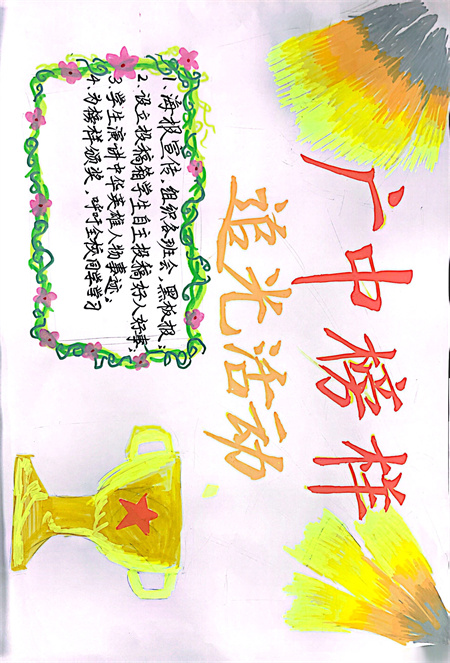 广中榜样
追光活动
1、海报宣传,组织各班会,黑板报;
2、设立投稿箱学生自主投稿好人好事;
3、学生演讲中华英雄人物事迹;
4、为榜样颁奖,呼吁全校同学学习